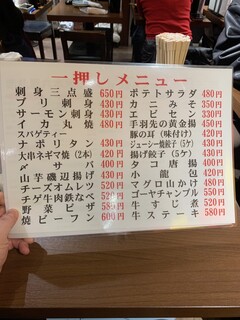 一押しメニュー
刺身三点盛 650円
ブリ刺身 430円
サーモン刺身 430円
イカ丸焼 480円
スパゲティー
ナポリタン 430円
大串ネギマ焼(2本) 420円
〆サバ 400円
山芋磯辺揚げ 430円
チーズオムレツ 520円
チゲ牛肉鉄なべ 520円
野菜ピザ 580円
焼ビーフン 600円
ポテトサラダ 480円
カニみそ 350円
エビセン 330円
手羽先の黄金揚 450円
豚の耳(味付け) 420円
ジューシー焼餃子(5ケ) 430円
揚げ餃子(5ケ) 430円
タコ唐揚 400円
小籠包 420円
マグロ山かけ 480円
ゴーヤチャンプル 550円
牛すじ煮 520円
牛ステーキ 580円